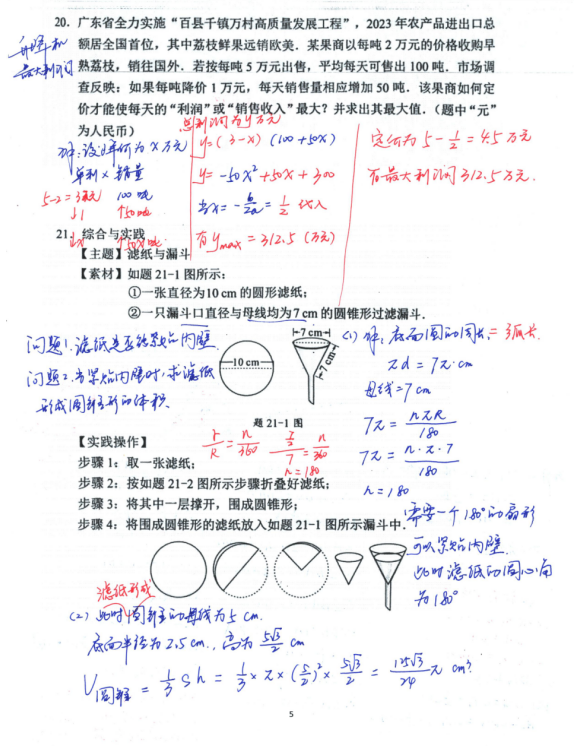 20. 广东省全力实施“百县千镇万村高质量发展工程”，2023 年农产品进出口总
额居全国首位，其中荔枝鲜果远销欧美．某果商以每吨 2 万元的价格收购早
熟荔枝，销往国外．若按每吨 5 万元出售，平均每天可售出 100 吨．市场调
查反映：如果每吨降价 1 万元，每天销售量相应增加 50 吨．该果商如何定
价才能使每天的“利润”或“销售收入”最大？并求出其最大值．（题中“元”
为人民币）
最大利润
总利润为y万元
解：设降价为 x 万元
y=(3-x)(100+50x)
定价为 5-1/2=4.5 万元
单利×销量
y=-50x²+50x+300
有最大利润312.5万元.
5-2=3万元 100吨
↓1 ↑50吨
当x=-b/2a=1/2 代入
↓x ↑50x吨
有 y_max=312.5 (万元)
21. 综合与实践
【主题】滤纸与漏斗
【素材】如题 21-1 图所示：
①一张直径为10 cm 的圆形滤纸；
②一只漏斗口直径与母线均为7 cm 的圆锥形过滤漏斗．
问题1. 滤纸是否能紧贴内壁
问题2. 当紧贴内壁时，求滤纸
形成圆锥形的体积.
10 cm
7 cm
7 cm
题 21-1 图
(1) 解，底面圆的周长=弧长.
πd=7π·cm
母线=7cm
7π=nπR/180
7π=n·π·7/180
n=180
【实践操作】
r/R=n/360
7/2/7=n/360
n=180
步骤 1：取一张滤纸；
步骤 2：按如题 21-2 图所示步骤折叠好滤纸；
步骤 3：将其中一层撑开，围成圆锥形；
步骤 4：将围成圆锥形的滤纸放入如题 21-1 图所示漏斗中．
需要一个180°的扇形
可以紧贴内壁.
此时滤纸的圆心角
为180°
滤纸形成
(2) 此时圆锥的母线为5 cm.
底面半径为2.5cm.，高为 5√3/2 cm
V圆锥=1/3 Sh=1/3×π×(5/2)²×5√3/2=125√3/24 π cm³
5